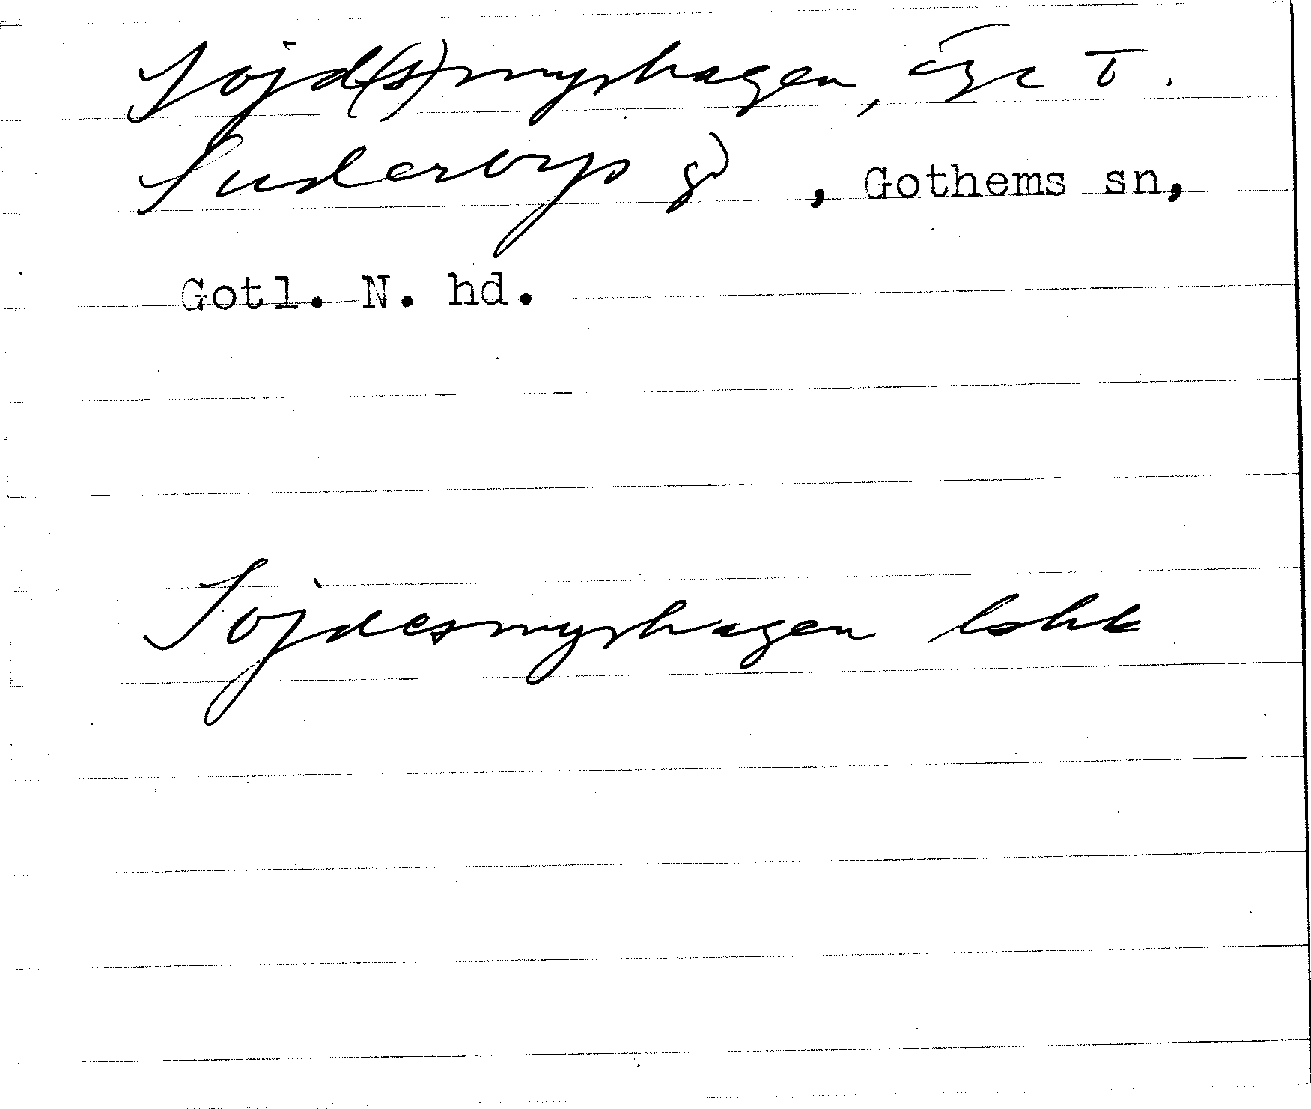 Sojd(s)myrhagen, äga T.
Suderbys gd, Gothems sn,
Gotl. N. hd.
Sojdesmyrhagen lshk